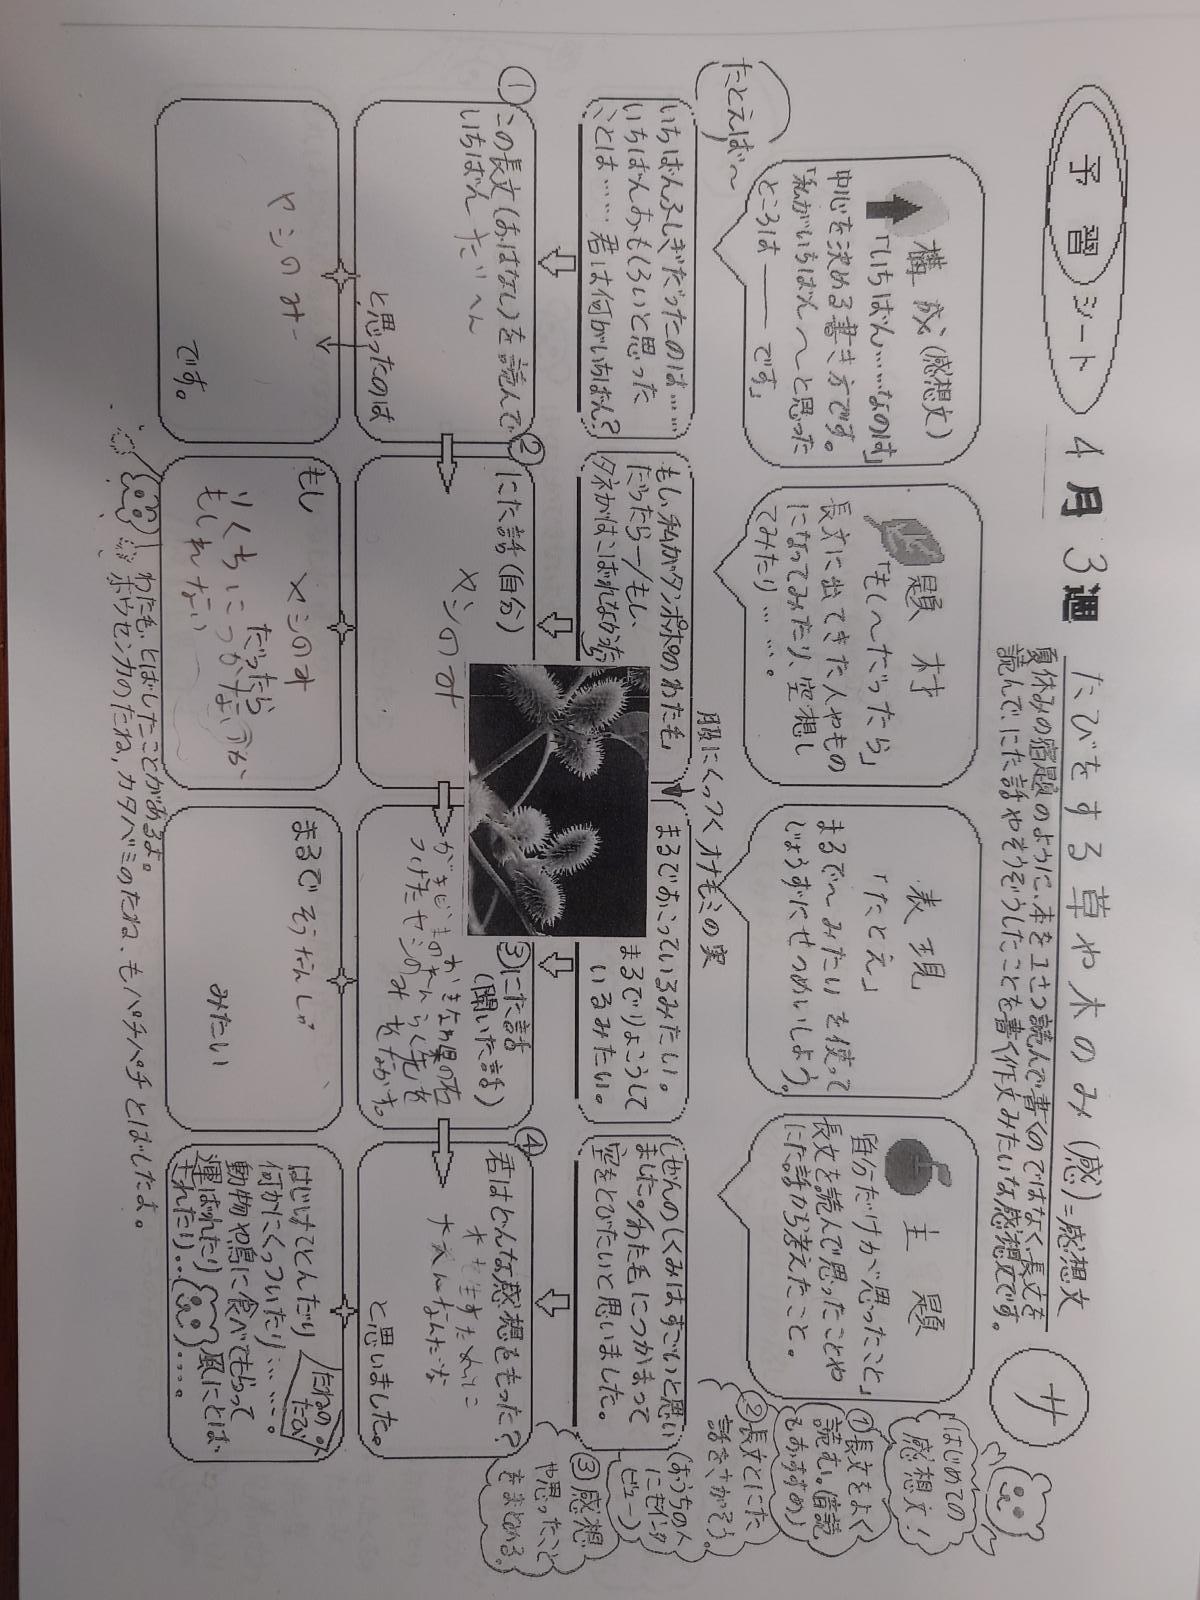 予習シート
4月3週
たびをする草や木のみ(感)=感想文
夏休みの宿題のように、本を1さつ読んで書くのではなく、長文を
読んで、にた話やそうぞうしたことを書く作文みたいな感想文です。
サ
はじめての
感想文!
①長文をよく
読む。(音読
もおすすめ)
②長文とにた
話をさがそう。
(おうちの人
にもインタ
ビュー)
③感想
や思ったこと
をまとめる。
構成(感想文)
「いちばん……なのは」
中心を決める書き方です。
「私がいちばん〜と思った
ところは――です」
題材
「もし〜だったら」
長文に出てきた人やもの
になってみたり、空想し
てみたり……。
表現
「たとえ」
まるで〜みたい を使って
じょうずにせつめいしよう。
主題
「自分だけが思ったこと」
長文を読んで思ったことや
にた話から考えたこと。
たとえば〜
いちばんふしぎだったのは……
いちばんおもしろいと思った
ことは……君は何がいちばん?
もし、私がタンポポのわた毛
だったら―/もし、
タネがはこばれなかったら
服にくっつくオナモミの実
まるでおこっているみたい。
まるでりょこうして
いるみたい。
しぜんのしくみはすごいと思い
ました。/わた毛につかまって
空をとびたいと思いました。
①
この長文(おはなし)を読んで
いちばん たいへん
と思ったのは
ヤシのみ
です。
②
にた話(自分)
ヤシのみ
もし ヤシのみ
だったら
りくちにつかないか
もしれない
③にた話
(聞いた話)
つけたヤシのみをながす。
まるで そうだんしゃ
みたい
④
君はどんな感想をもった?
大へんなんだな
と思いました。
たねの
たび
はじけてとんだり
何かにくっついたり……。
動物や鳥に食べてもらって
運ばれたり 風にとば
されたり……。
わた毛、とばしたことがあるよ。
ホウセンカのたね、カタバミのたね、もパチパチとばしたよ。